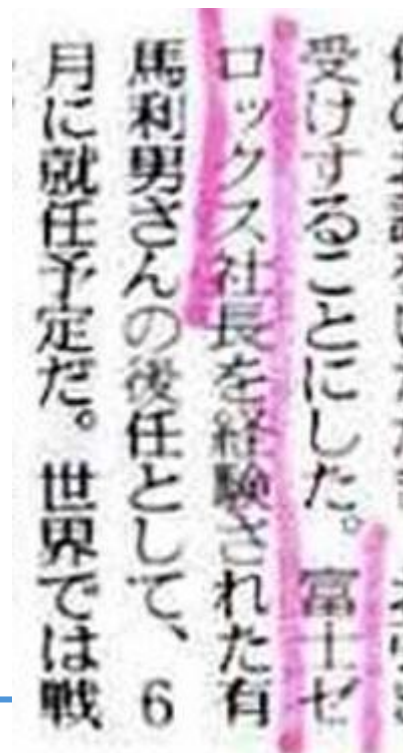 受けすることにした。富士ゼ
ロックス社長を経験された有
馬利男さんの後任として、6
月に就任予定だ。世界では戦